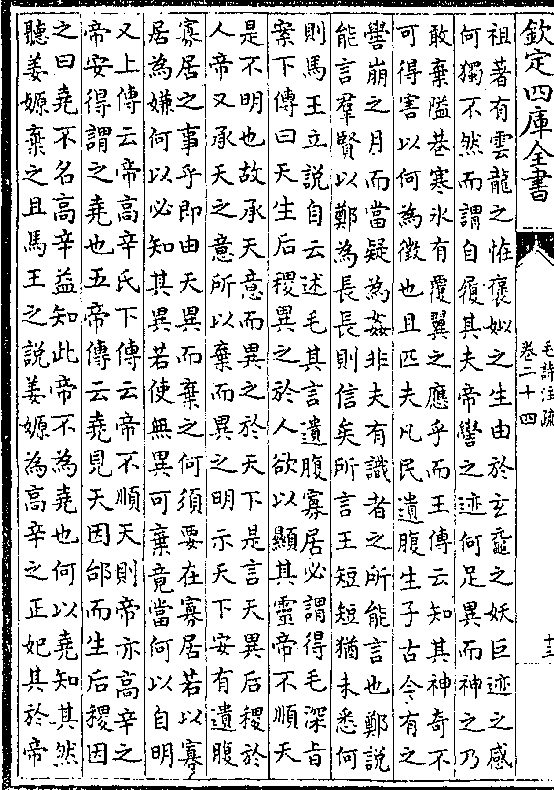 欽定四庫全書
毛詩注疏
卷二十四
十三
祖著有雲龍之恠褒姒之生由於玄黿之妖巨迹之感
何獨不然而謂自履其夫帝嚳之迹何足異而神之乃
敢棄隘巷寒氷有覆翼之應乎而王傳云知其神奇不
可得害以何為徵也且匹夫凡民遺腹生子古今有之
嚳崩之月而當疑為姦非夫有識者之所能言也鄭說
能言羣賢以鄭為長長則信矣所言王短短猶未悉何
則馬王立說自云述毛其言遺腹寡居必謂得毛深旨
案下傳曰天生后稷異之於人欲以顯其靈帝不順天
是不明也故承天意而異之於天下是言天異后稷於
人帝又承天之意所以棄而異之明示天下安有遺腹
寡居之事乎即由天異而棄之何須要在寡居若以寡
居為嫌何以必知其異若使無異可棄竟當何以自明
又上傳云帝高辛氏下傳云帝不順天則帝亦高辛之
帝安得謂之堯也五帝傳云堯見天因邰而生后稷因
之曰堯不名高辛益知此帝不為堯也何以堯知其然
聽姜嫄棄之且馬王之說姜嫄為高辛之正妃其於帝